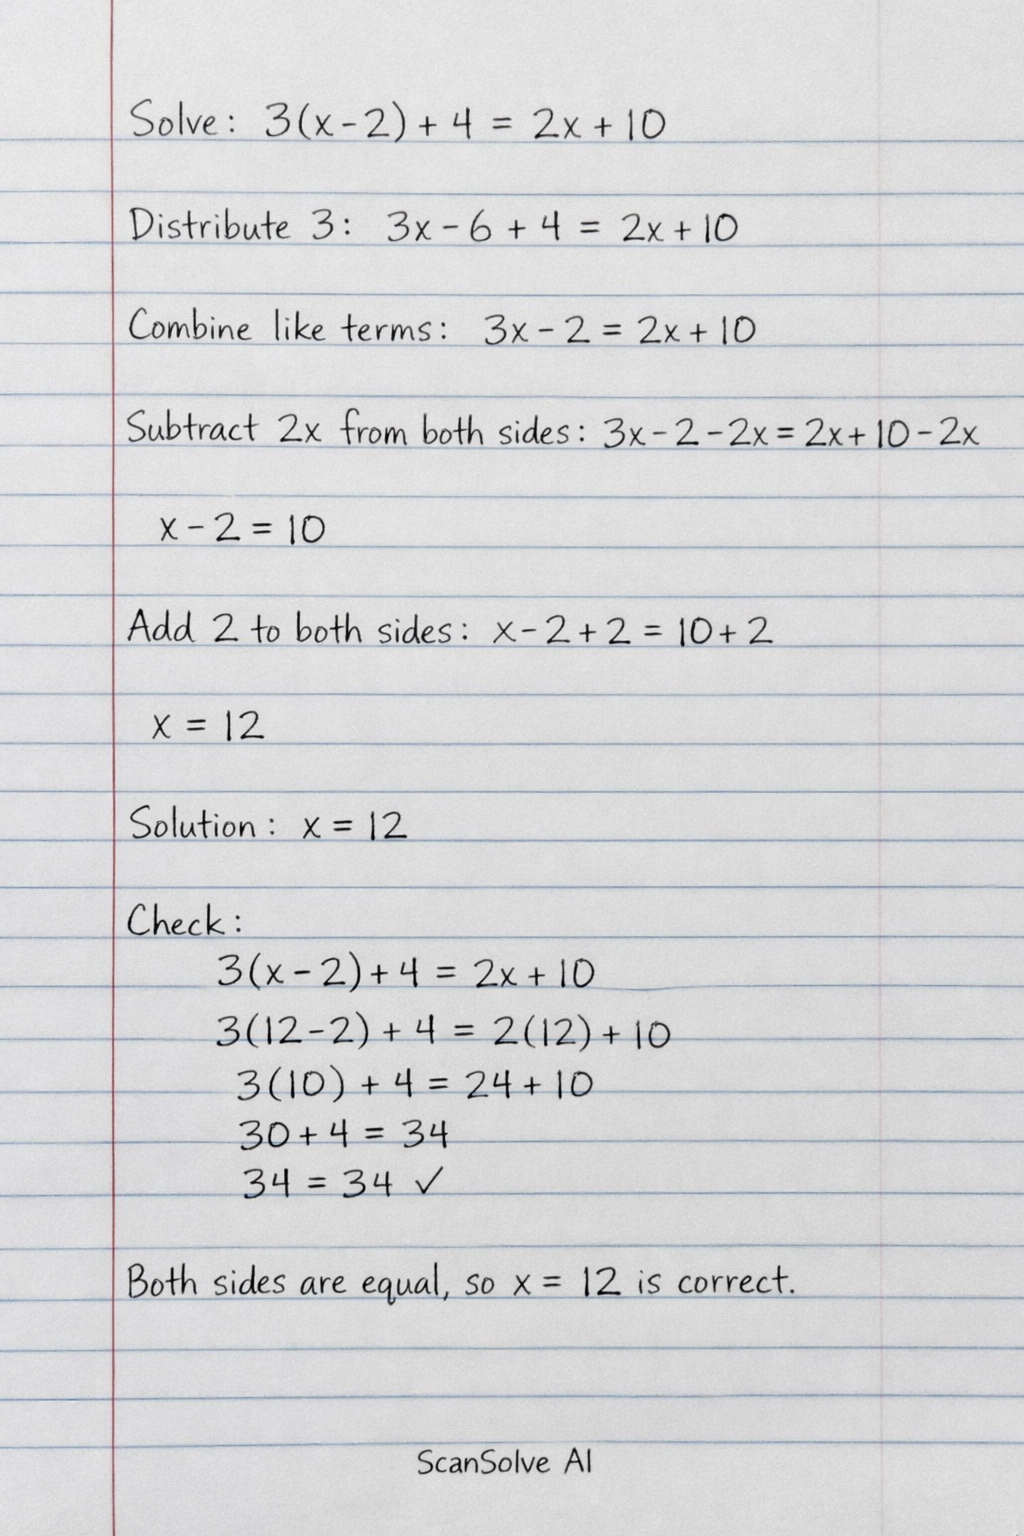 Solve: 3(x-2)+4 = 2x+10
Distribute 3: 3x-6+4 = 2x+10
Combine like terms: 3x-2=2x+10
Subtract 2x from both sides: 3x-2-2x=2x+10-2x
x-2=10
Add 2 to both sides: x-2+2=10+2
x = 12
Solution: x = 12
Check:
3(x-2)+4 = 2x+10
3(12-2)+4 = 2(12)+10
3(10)+4=24+10
30+4=34
34=34 ✓
Both sides are equal, so x = 12 is correct.
ScanSolve AI